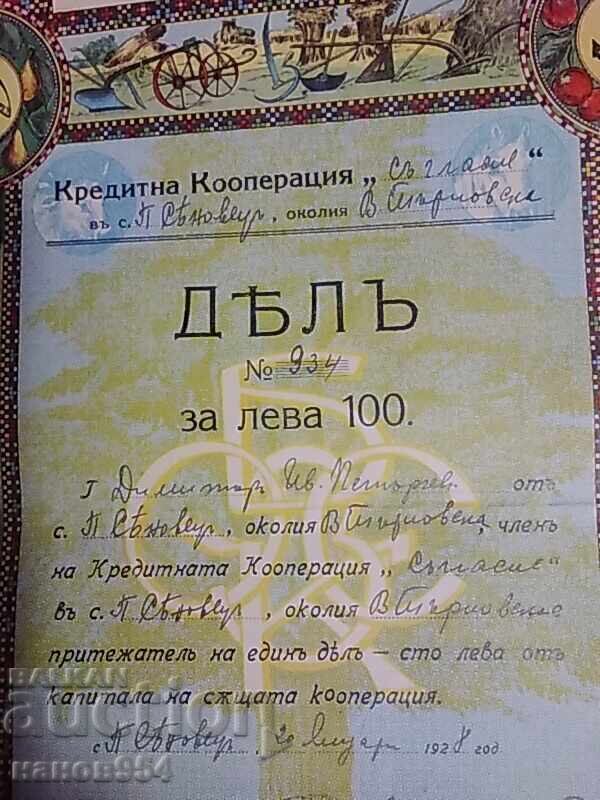 Кредитна Кооперация „Съгласие“
въ с. П. Сѣновецъ, околия В. Търновска
ДѢЛЪ
№ 934
за лева 100.
Г Димитър Ив. отъ
с. П. Сѣновецъ, околия В. Търновска, членъ
на Кредитната Кооперация „Съгласие“
въ с. П. Сѣновецъ, околия В. Търновска
притежатель на единъ дѣлъ — сто лева отъ
капитала на сѫщата кооперация.
с. П. Сѣновецъ, Януари 1928 год.
BALKAN
auction
нанов954